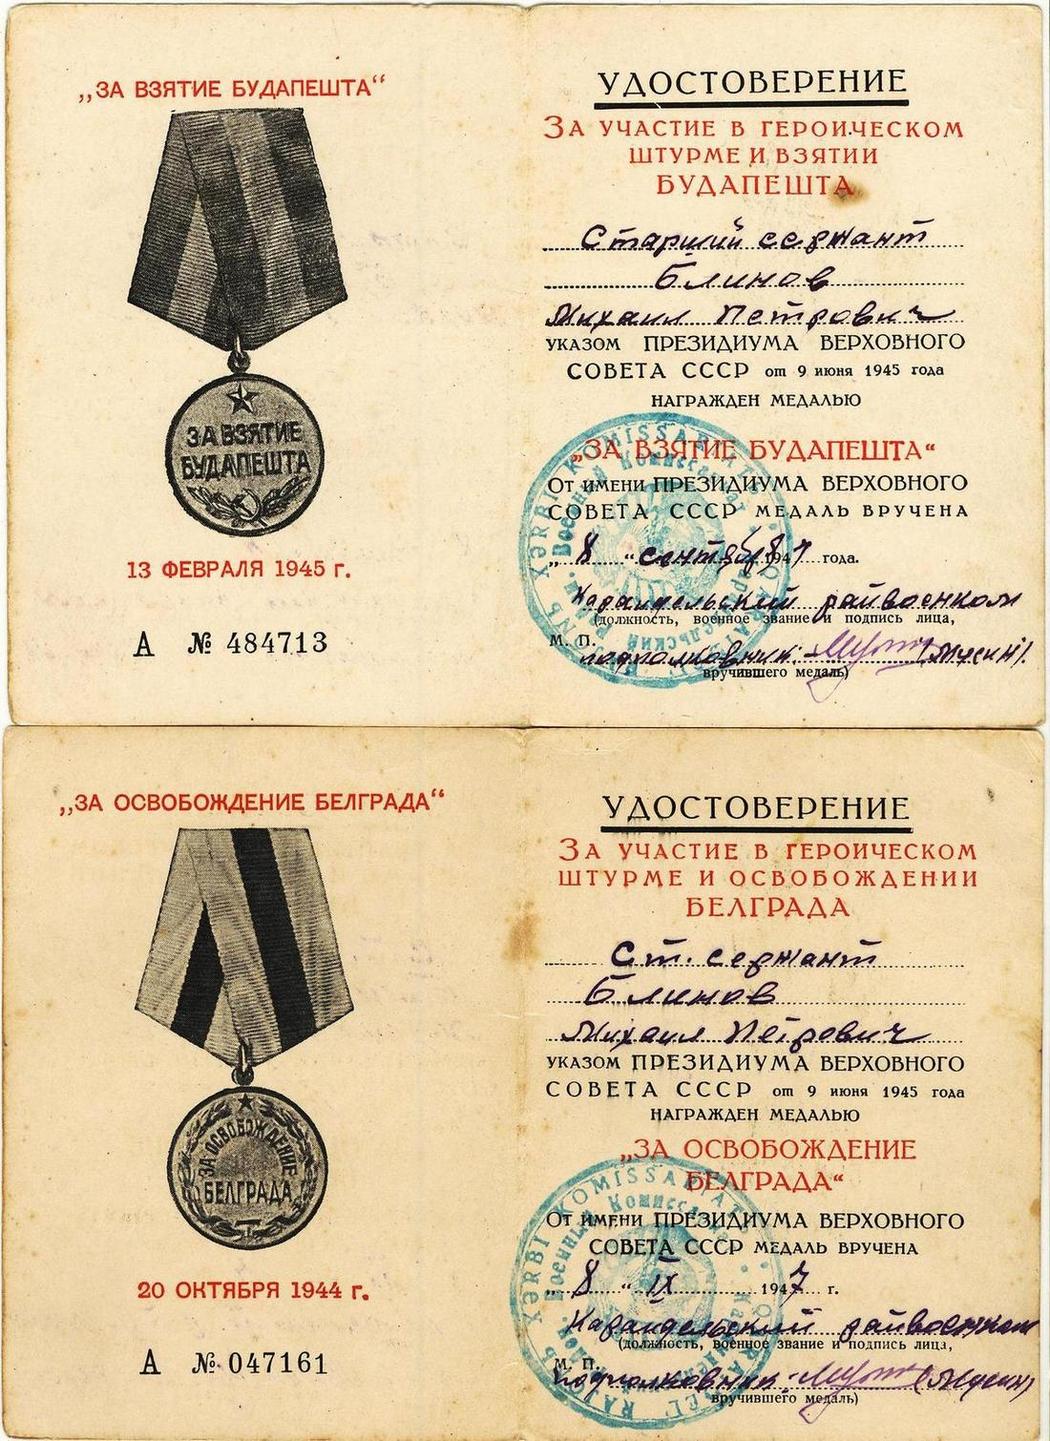 „ЗА ВЗЯТИЕ БУДАПЕШТА“
ЗА ВЗЯТИЕ
БУДАПЕШТА
13 ФЕВРАЛЯ 1945 г.
А № 484713
УДОСТОВЕРЕНИЕ
ЗА УЧАСТИЕ В ГЕРОИЧЕСКОМ
ШТУРМЕ И ВЗЯТИИ
БУДАПЕШТА
Старший сержант
Блинов
Михаил Петрович
УКАЗОМ ПРЕЗИДИУМА ВЕРХОВНОГО
СОВЕТА СССР от 9 июня 1945 года
НАГРАЖДЕН МЕДАЛЬЮ
„ЗА ВЗЯТИЕ БУДАПЕШТА“
ОТ ИМЕНИ ПРЕЗИДИУМА ВЕРХОВНОГО
СОВЕТА СССР МЕДАЛЬ ВРУЧЕНА
„8“ сентября 1947 года.
Караидельский райвоенком
(должность, военное звание и подпись лица,
М. П.
подполковник: (Мусин).
вручившего медаль)
XƏRBI KOMISSARIAT
Военный Комиссариат
„ЗА ОСВОБОЖДЕНИЕ БЕЛГРАДА“
ЗА ОСВОБОЖДЕНИЕ
БЕЛГРАДА
20 ОКТЯБРЯ 1944 г.
А № 047161
УДОСТОВЕРЕНИЕ
ЗА УЧАСТИЕ В ГЕРОИЧЕСКОМ
ШТУРМЕ И ОСВОБОЖДЕНИИ
БЕЛГРАДА
Ст. сержант
Блинов
Михаил Петрович
УКАЗОМ ПРЕЗИДИУМА ВЕРХОВНОГО
СОВЕТА СССР от 9 июня 1945 года
НАГРАЖДЕН МЕДАЛЬЮ
„ЗА ОСВОБОЖДЕНИЕ
БЕЛГРАДА“
ОТ ИМЕНИ ПРЕЗИДИУМА ВЕРХОВНОГО
СОВЕТА СССР МЕДАЛЬ ВРУЧЕНА
„8“ IX 1947 г.
Караидельский райвоенком
(должность, военное звание и подпись лица,
М. П.
подполковник: (Мусин)
вручившего медаль)
XƏRBI KOMISSARIAT
Военный Комиссариат